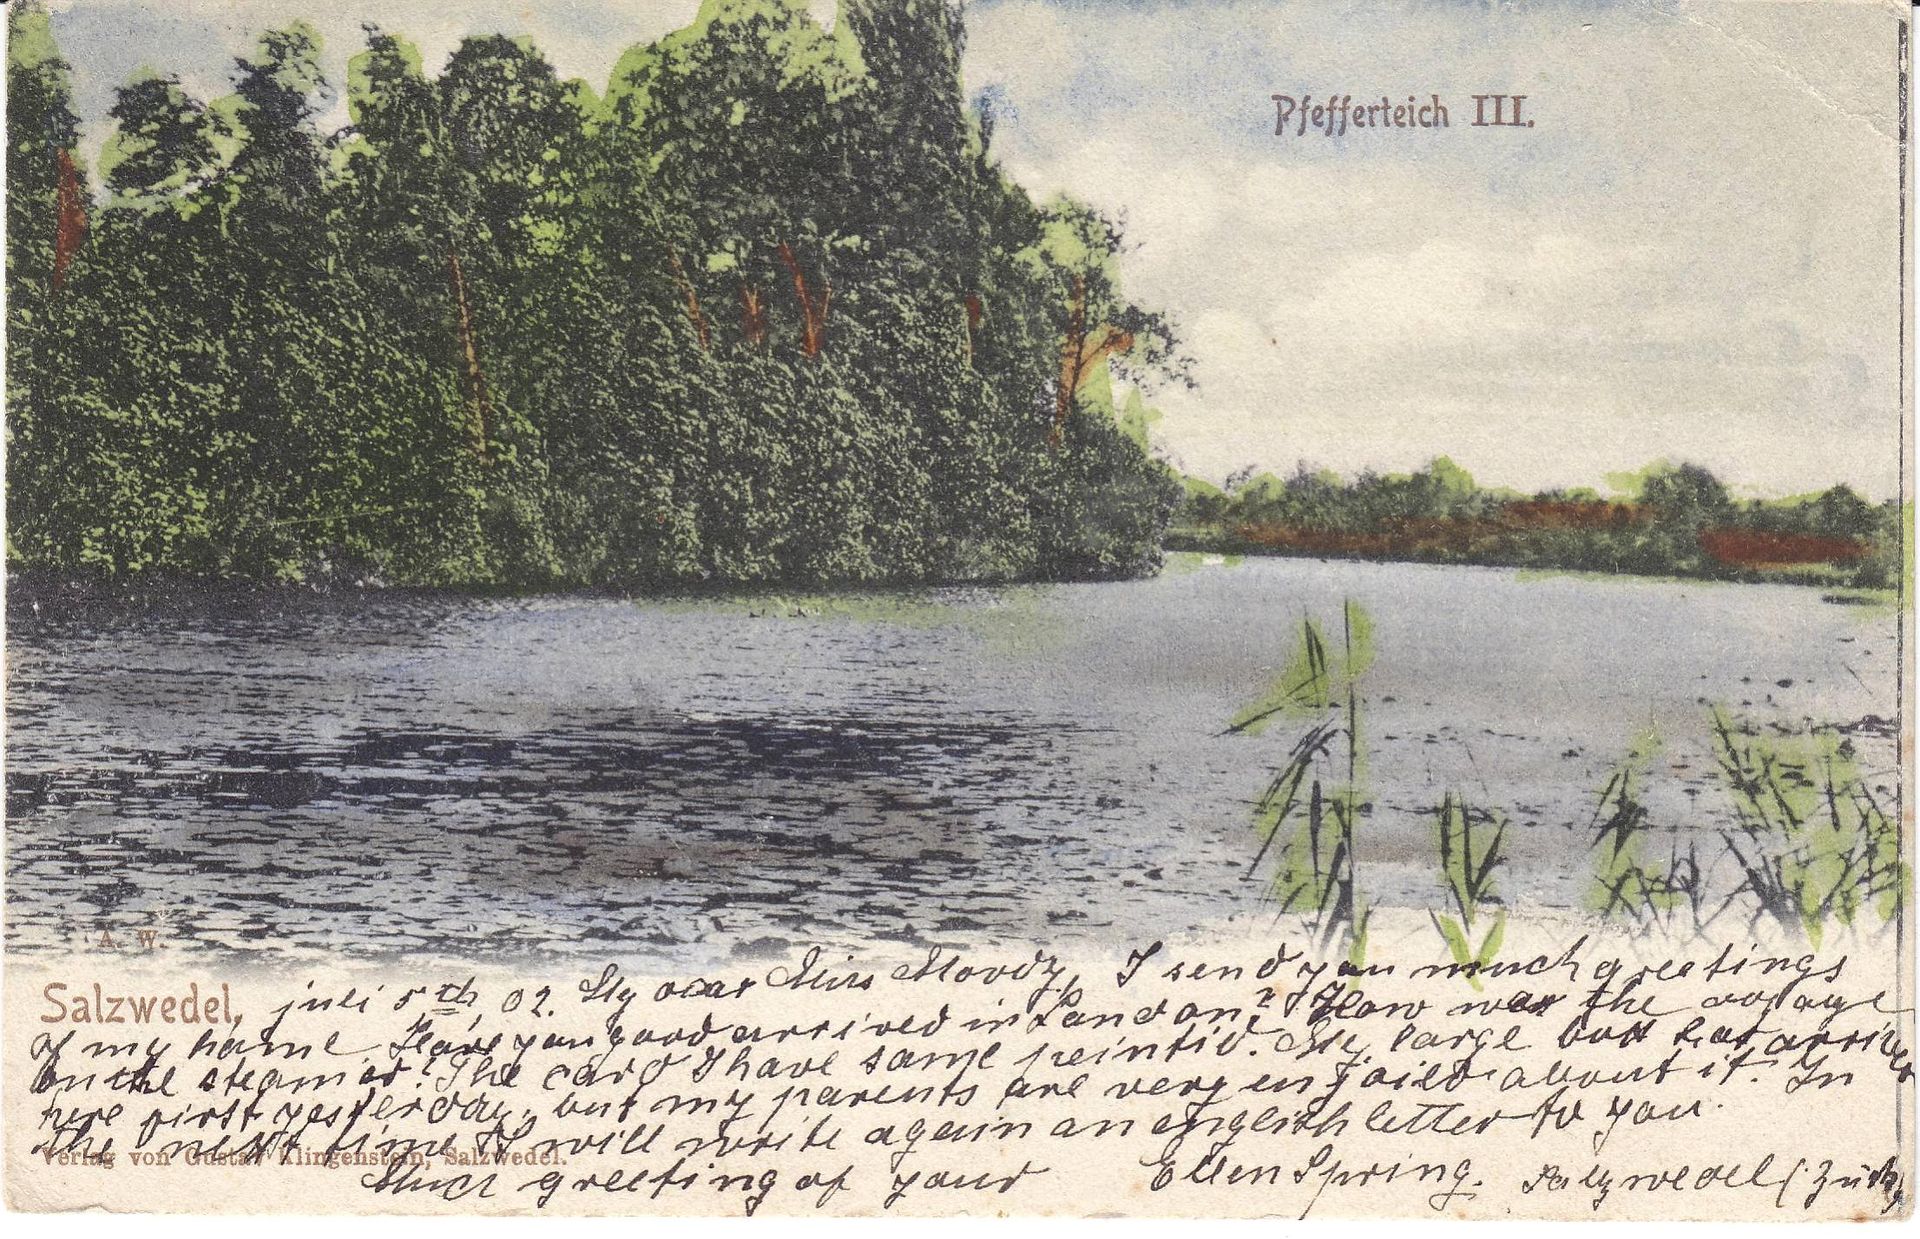 Pfefferteich III.
A. W.
Salzwedel, juli 5th, 02. My dear Miss Moody, I send you much greetings
of my home. Have you good arrived in London? How was the voyage
on the steamer? The card I have same peintid. My large box has arrived
here first yesterday, but my parents are very enjoied about it. In
the next time I will write again an english letter to you.
Verlag von Gustav Klingenstein, Salzwedel.
Much greeting of your Ellen Spring. Salzwedel